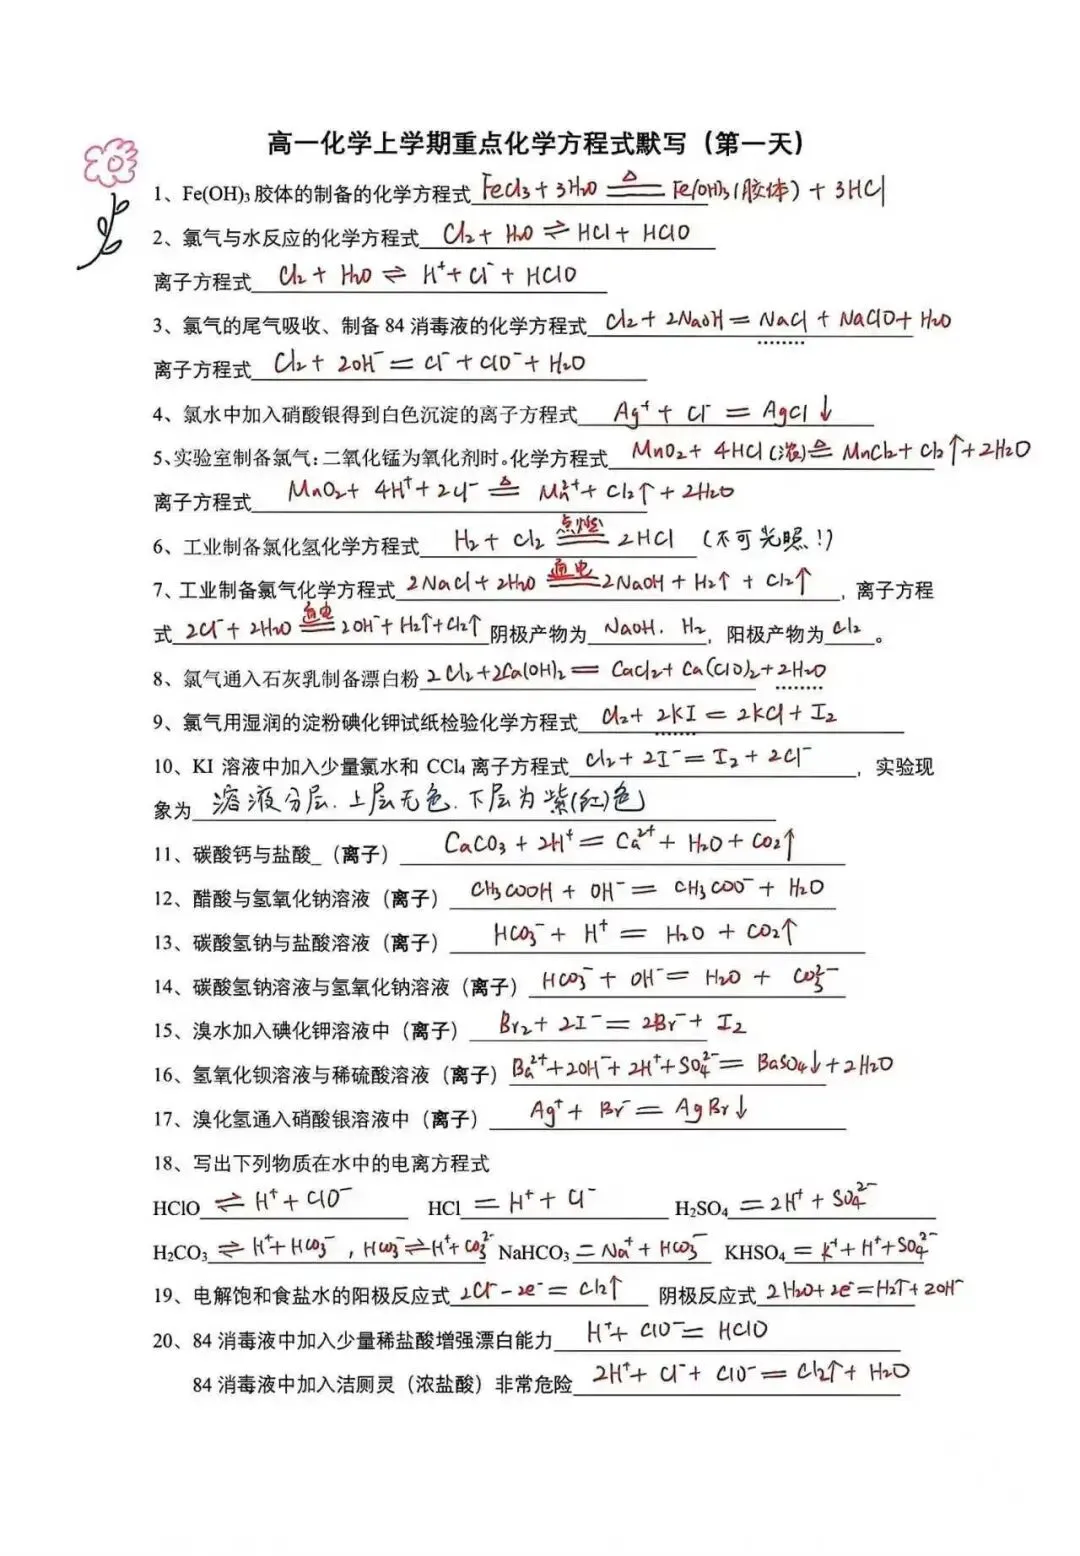 高一化学上学期重点化学方程式默写（第一天）
1、Fe(OH)₃ 胶体的制备的化学方程式 FeCl₃ + 3H₂O ≜ Fe(OH)₃(胶体) + 3HCl
2、氯气与水反应的化学方程式 Cl₂ + H₂O ⇌ HCl + HClO
离子方程式 Cl₂ + H₂O ⇌ H⁺ + Cl⁻ + HClO
3、氯气的尾气吸收、制备 84 消毒液的化学方程式 Cl₂ + 2NaOH = NaCl + NaClO + H₂O
离子方程式 Cl₂ + 2OH⁻ = Cl⁻ + ClO⁻ + H₂O
4、氯水中加入硝酸银得到白色沉淀的离子方程式 Ag⁺ + Cl⁻ = AgCl↓
5、实验室制备氯气：二氧化锰为氧化剂时。化学方程式 MnO₂ + 4HCl(浓) ≜ MnCl₂ + Cl₂↑ + 2H₂O
离子方程式 MnO₂ + 4H⁺ + 2Cl⁻ ≜ Mn²⁺ + Cl₂↑ + 2H₂O
6、工业制备氯化氢化学方程式 H₂ + Cl₂ 点燃= 2HCl （不可光照！）
7、工业制备氯气化学方程式 2NaCl + 2H₂O 通电= 2NaOH + H₂↑ + Cl₂↑，离子方程
式 2Cl⁻ + 2H₂O 通电= 2OH⁻ + H₂↑ + Cl₂↑ 阴极产物为 NaOH. H₂，阳极产物为 Cl₂。
8、氯气通入石灰乳制备漂白粉 2Cl₂ + 2Ca(OH)₂ = CaCl₂ + Ca(ClO)₂ + 2H₂O
9、氯气用湿润的淀粉碘化钾试纸检验化学方程式 Cl₂ + 2KI = 2KCl + I₂
10、KI 溶液中加入少量氯水和 CCl₄ 离子方程式 Cl₂ + 2I⁻ = I₂ + 2Cl⁻，实验现
象为 溶液分层. 上层无色. 下层为紫(红)色
11、碳酸钙与盐酸_（离子） CaCO₃ + 2H⁺ = Ca²⁺ + H₂O + CO₂↑
12、醋酸与氢氧化钠溶液（离子） CH₃COOH + OH⁻ = CH₃COO⁻ + H₂O
13、碳酸氢钠与盐酸溶液（离子） HCO₃⁻ + H⁺ = H₂O + CO₂↑
14、碳酸氢钠溶液与氢氧化钠溶液（离子） HCO₃⁻ + OH⁻ = H₂O + CO₃²⁻
15、溴水加入碘化钾溶液中（离子） Br₂ + 2I⁻ = 2Br⁻ + I₂
16、氢氧化钡溶液与稀硫酸溶液（离子） Ba²⁺ + 2OH⁻ + 2H⁺ + SO₄²⁻ = BaSO₄↓ + 2H₂O
17、溴化氢通入硝酸银溶液中（离子） Ag⁺ + Br⁻ = AgBr↓
18、写出下列物质在水中的电离方程式
HClO ⇌ H⁺ + ClO⁻ HCl = H⁺ + Cl⁻ H₂SO₄ = 2H⁺ + SO₄²⁻
H₂CO₃ ⇌ H⁺ + HCO₃⁻, HCO₃⁻ ⇌ H⁺ + CO₃²⁻ NaHCO₃ = Na⁺ + HCO₃⁻ KHSO₄ = K⁺ + H⁺ + SO₄²⁻
19、电解饱和食盐水的阳极反应式 2Cl⁻ - 2e⁻ = Cl₂↑ 阴极反应式 2H₂O + 2e⁻ = H₂↑ + 2OH⁻
20、84 消毒液中加入少量稀盐酸增强漂白能力 H⁺ + ClO⁻ = HClO
84 消毒液中加入洁厕灵（浓盐酸）非常危险 2H⁺ + Cl⁻ + ClO⁻ = Cl₂↑ + H₂O